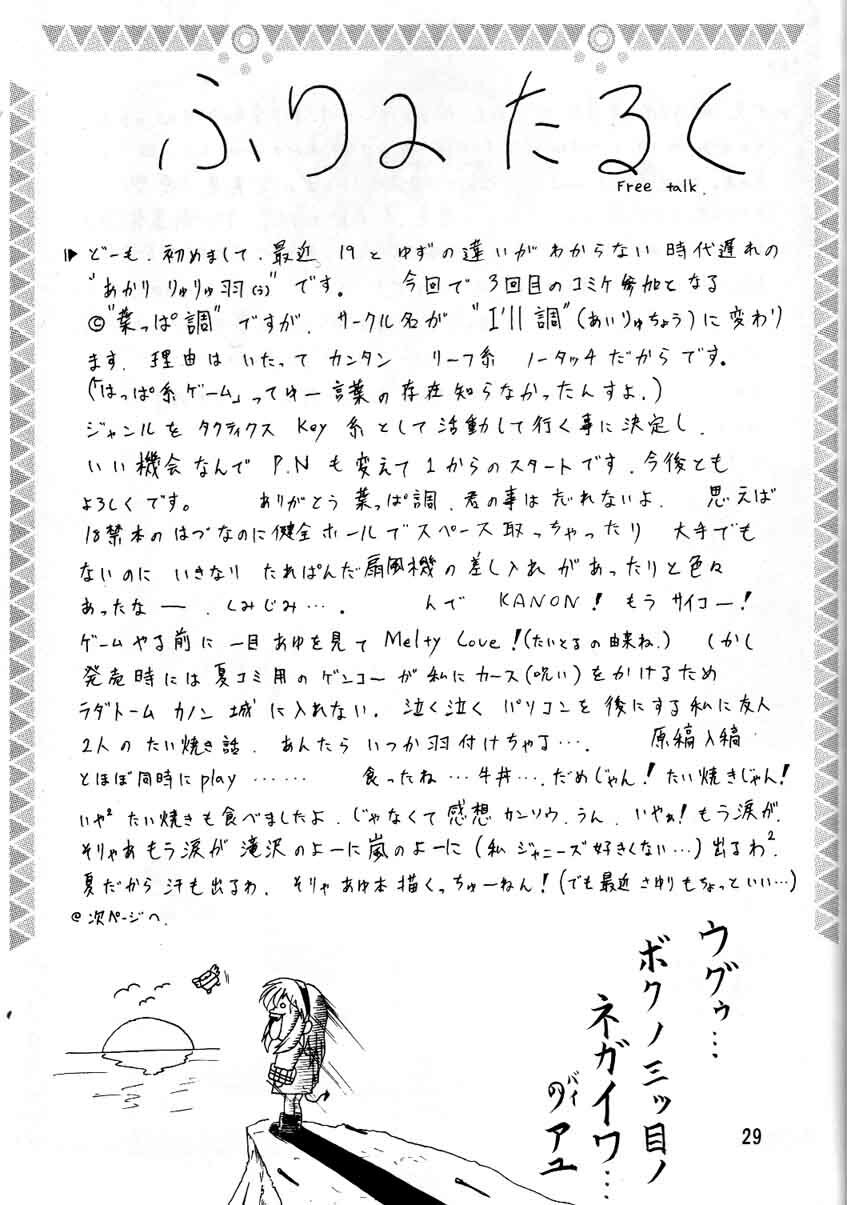 ふりーたるく
Free talk.
どーも、初めまして、最近 19とゆずの違いがわからない時代遅れの
"あかり りゅりゅ羽(う)"です。 今回で3回目のコミケ参加となる
©"葉っぱ調"ですが、サークル名が "I'll調"(あいりゅちょう)に変わり
ます、理由はいたってカンタン リーフ系 ノータッチだからです。
(「はっぱ系ゲーム」ってゆー言葉の存在知らなかったんすよ。)
ジャンルをタクティクス Key 系として活動して行く事に決定し、
いい機会なんで P.Nも変えて1からのスタートです、今後とも
よろしくです。 ありがとう葉っぱ調、君の事は忘れないよ、 思えば
18禁本のはづなのに健全ホールでスペース取っちゃったり 大手でも
ないのに いきなり たれぱんだ扇風機の差し入れがあったりと色々
あったなー、くみじみ…。 んで KANON! もうサイコー!
ゲームやる前に一目あゆを見て Melty Love!(たいとるの由来ね。) しかし
発売時には夏コミ用のゲンコーが私にカース(呪い)をかけるため
ラダトーム カノン 城に入れない、泣く泣く パソコンを後にする私に友人
2人のたい焼き話、あんたらいつか羽付けちゃる…。 原稿入稿
とほぼ同時にplay …… 食ったね…牛丼…、だめじゃん!たい焼きじゃん!
いや²たい焼きも食べましたよ、じゃなくて感想カンソウ、うん、いやぁ!もう涙が、
そりゃあもう涙が滝沢のよーに嵐のよーに(私ジャニーズ好きくない…)出るわ²、
夏だから汗も出るわ、そりゃあゆ本描くっちゅーねん!(でも最近さゆりもちょっといい…)
@次ページへ、
ウグゥ…
ボクノ三ッ目ノ
ネガイワ…
のバイ アユ
29